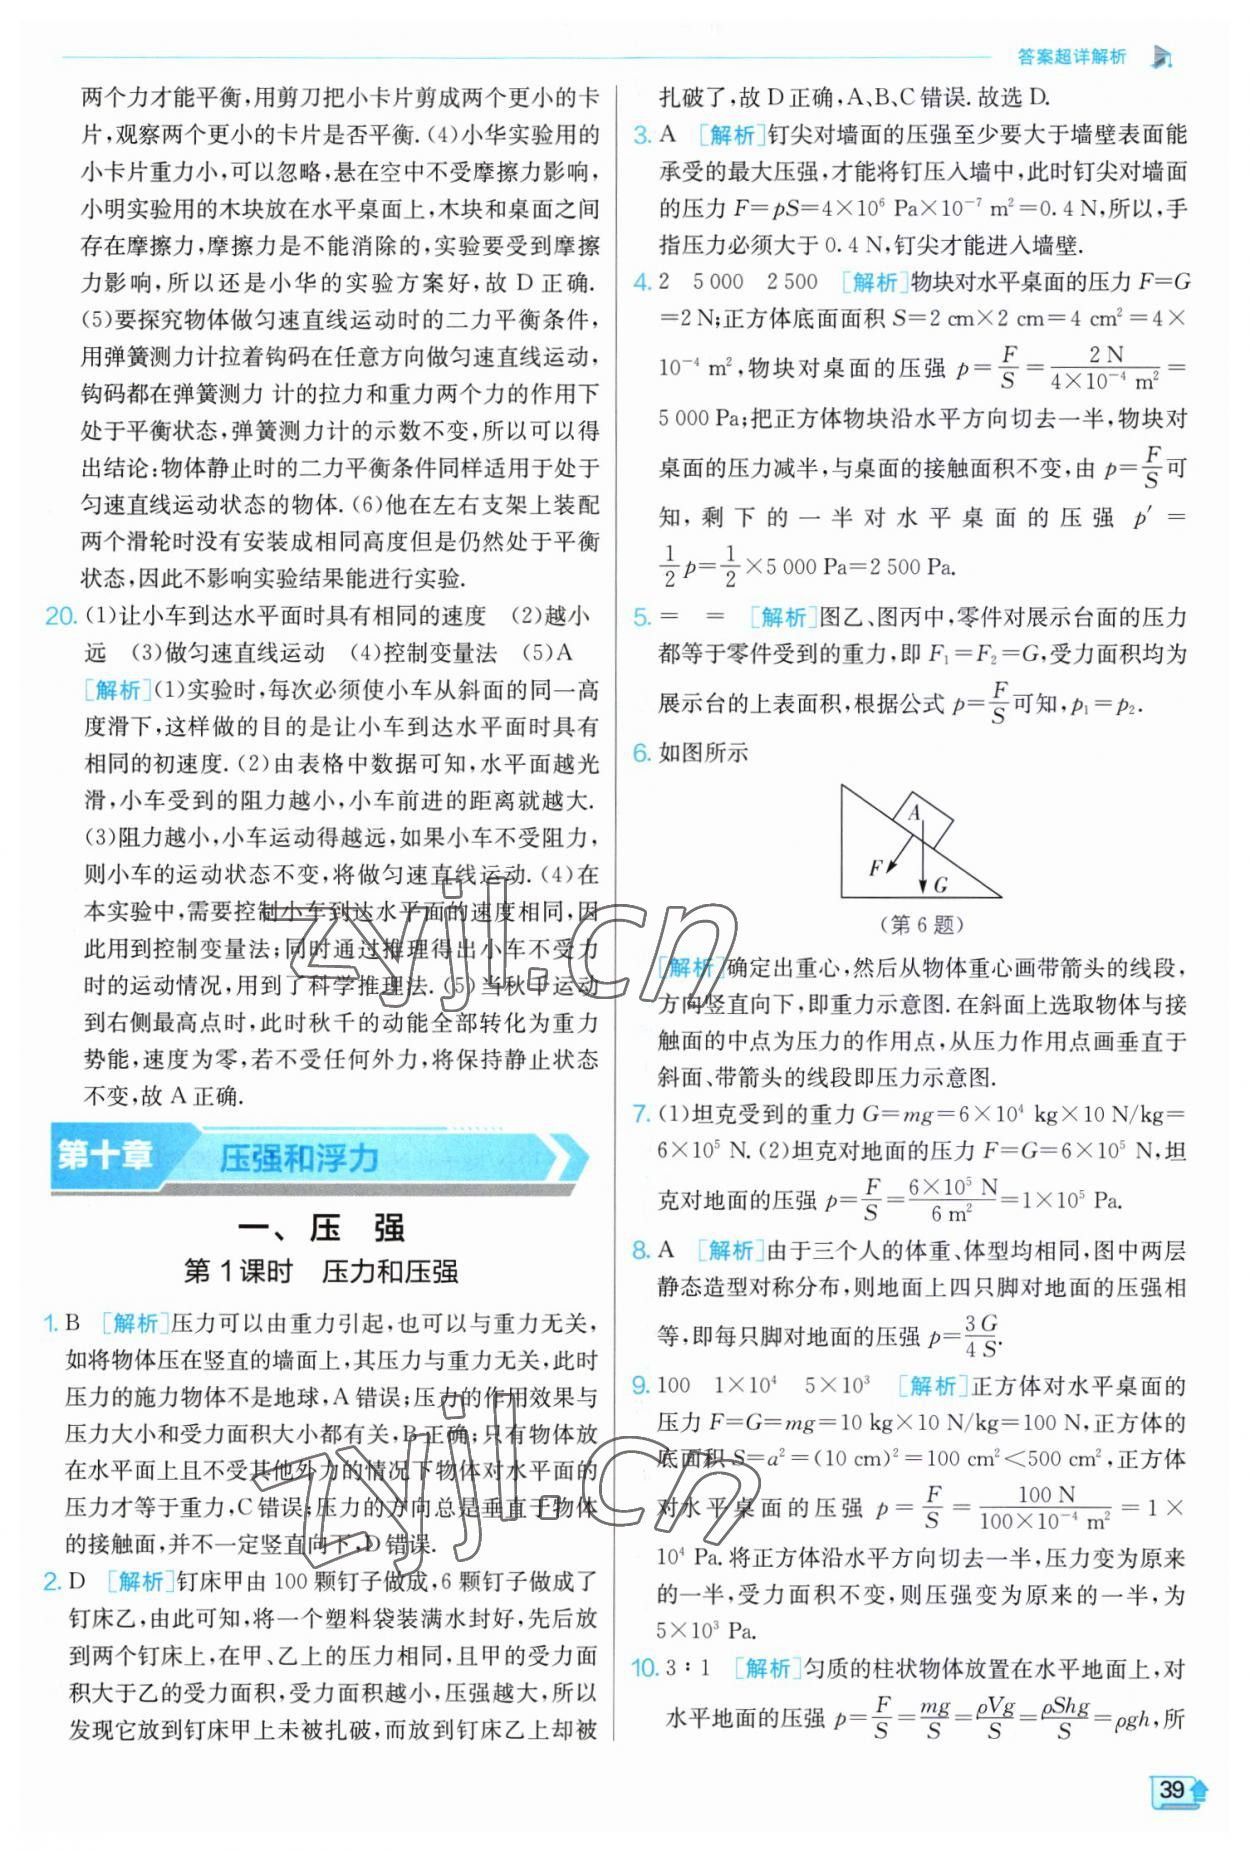 答案超详解析
两个力才能平衡,用剪刀把小卡片剪成两个更小的卡
片,观察两个更小的卡片是否平衡.(4)小华实验用的
小卡片重力小,可以忽略,悬在空中不受摩擦力影响,
小明实验用的木块放在水平桌面上,木块和桌面之间
存在摩擦力,摩擦力是不能消除的,实验要受到摩擦
力影响,所以还是小华的实验方案好,故 D 正确.
(5)要探究物体做匀速直线运动时的二力平衡条件,
用弹簧测力计拉着钩码在任意方向做匀速直线运动,
钩码都在弹簧测力 计的拉力和重力两个力的作用下
处于平衡状态,弹簧测力计的示数不变,所以可以得
出结论:物体静止时的二力平衡条件同样适用于处于
匀速直线运动状态的物体.(6)他在左右支架上装配
两个滑轮时没有安装成相同高度但是仍然处于平衡
状态,因此不影响实验结果能进行实验.
20. (1)让小车到达水平面时具有相同的速度 (2)越小
远 (3)做匀速直线运动 (4)控制变量法 (5)A
[解析](1)实验时,每次必须使小车从斜面的同一高
度滑下,这样做的目的是让小车到达水平面时具有
相同的初速度.(2)由表格中数据可知,水平面越光
滑,小车受到的阻力越小,小车前进的距离就越大.
(3)阻力越小,小车运动得越远,如果小车不受阻力,
则小车的运动状态不变,将做匀速直线运动.(4)在
本实验中,需要控制小车到达水平面的速度相同,因
此用到控制变量法;同时通过推理得出小车不受力
时的运动情况,用到了科学推理法.(5)当秋千运动
到右侧最高点时,此时秋千的动能全部转化为重力
势能,速度为零,若不受任何外力,将保持静止状态
不变,故 A 正确.
第十章 压强和浮力
一、压 强
第 1 课时 压力和压强
1. B [解析]压力可以由重力引起,也可以与重力无关,
如将物体压在竖直的墙面上,其压力与重力无关,此时
压力的施力物体不是地球,A 错误;压力的作用效果与
压力大小和受力面积大小都有关,B 正确;只有物体放
在水平面上且不受其他外力的情况下物体对水平面的
压力才等于重力,C 错误;压力的方向总是垂直于物体
的接触面,并不一定竖直向下,D 错误.
2. D [解析]钉床甲由 100 颗钉子做成,6 颗钉子做成了
钉床乙,由此可知,将一个塑料袋装满水封好,先后放
到两个钉床上,在甲、乙上的压力相同,且甲的受力面
积大于乙的受力面积,受力面积越小,压强越大,所以
发现它放到钉床甲上未被扎破,而放到钉床乙上却被
扎破了,故 D 正确,A、B、C 错误.故选 D.
3. A [解析]钉尖对墙面的压强至少要大于墙壁表面能
承受的最大压强,才能将钉压入墙中,此时钉尖对墙面
的压力 F=pS=4×10⁶ Pa×10⁻⁷ m²=0.4 N,所以,手
指压力必须大于 0.4 N,钉尖才能进入墙壁.
4. 2 5 000 2 500 [解析]物块对水平桌面的压力 F=G
=2 N;正方体底面面积 S=2 cm×2 cm=4 cm²=4×
10⁻⁴ m²,物块对桌面的压强 p=F/S=2 N/(4×10⁻⁴ m²)=
5 000 Pa;把正方体物块沿水平方向切去一半,物块对
桌面的压力减半,与桌面的接触面积不变,由 p=F/S可
知,剩下的一半对水平桌面的压强 p′=
1/2 p=1/2×5 000 Pa=2 500 Pa.
5. = = [解析]图乙、图丙中,零件对展示台面的压力
都等于零件受到的重力,即 F₁=F₂=G,受力面积均为
展示台的上表面积,根据公式 p=F/S可知,p₁=p₂.
6. 如图所示
A
F
G
(第 6 题)
[解析]确定出重心,然后从物体重心画带箭头的线段,
方向竖直向下,即重力示意图.在斜面上选取物体与接
触面的中点为压力的作用点,从压力作用点画垂直于
斜面、带箭头的线段即压力示意图.
7. (1)坦克受到的重力 G=mg=6×10⁴ kg×10 N/kg=
6×10⁵ N.(2)坦克对地面的压力 F=G=6×10⁵ N,坦
克对地面的压强 p=F/S=6×10⁵ N/6 m²=1×10⁵ Pa.
8. A [解析]由于三个人的体重、体型均相同,图中两层
静态造型对称分布,则地面上四只脚对地面的压强相
等,即每只脚对地面的压强 p=3G/4S.
9. 100 1×10⁴ 5×10³ [解析]正方体对水平桌面的
压力 F=G=mg=10 kg×10 N/kg=100 N,正方体的
底面积 S=a²=(10 cm)²=100 cm²<500 cm²,正方体
对水平桌面的压强 p=F/S=100 N/(100×10⁻⁴ m²)=1×
10⁴ Pa.将正方体沿水平方向切去一半,压力变为原来
的一半,受力面积不变,则压强变为原来的一半,为
5×10³ Pa.
10. 3∶1 [解析]匀质的柱状物体放置在水平地面上,对
水平地面的压强 p=F/S=mg/S=ρVg/S=ρShg/S=ρgh,所
39
zyjl.cn
zyjl.cn